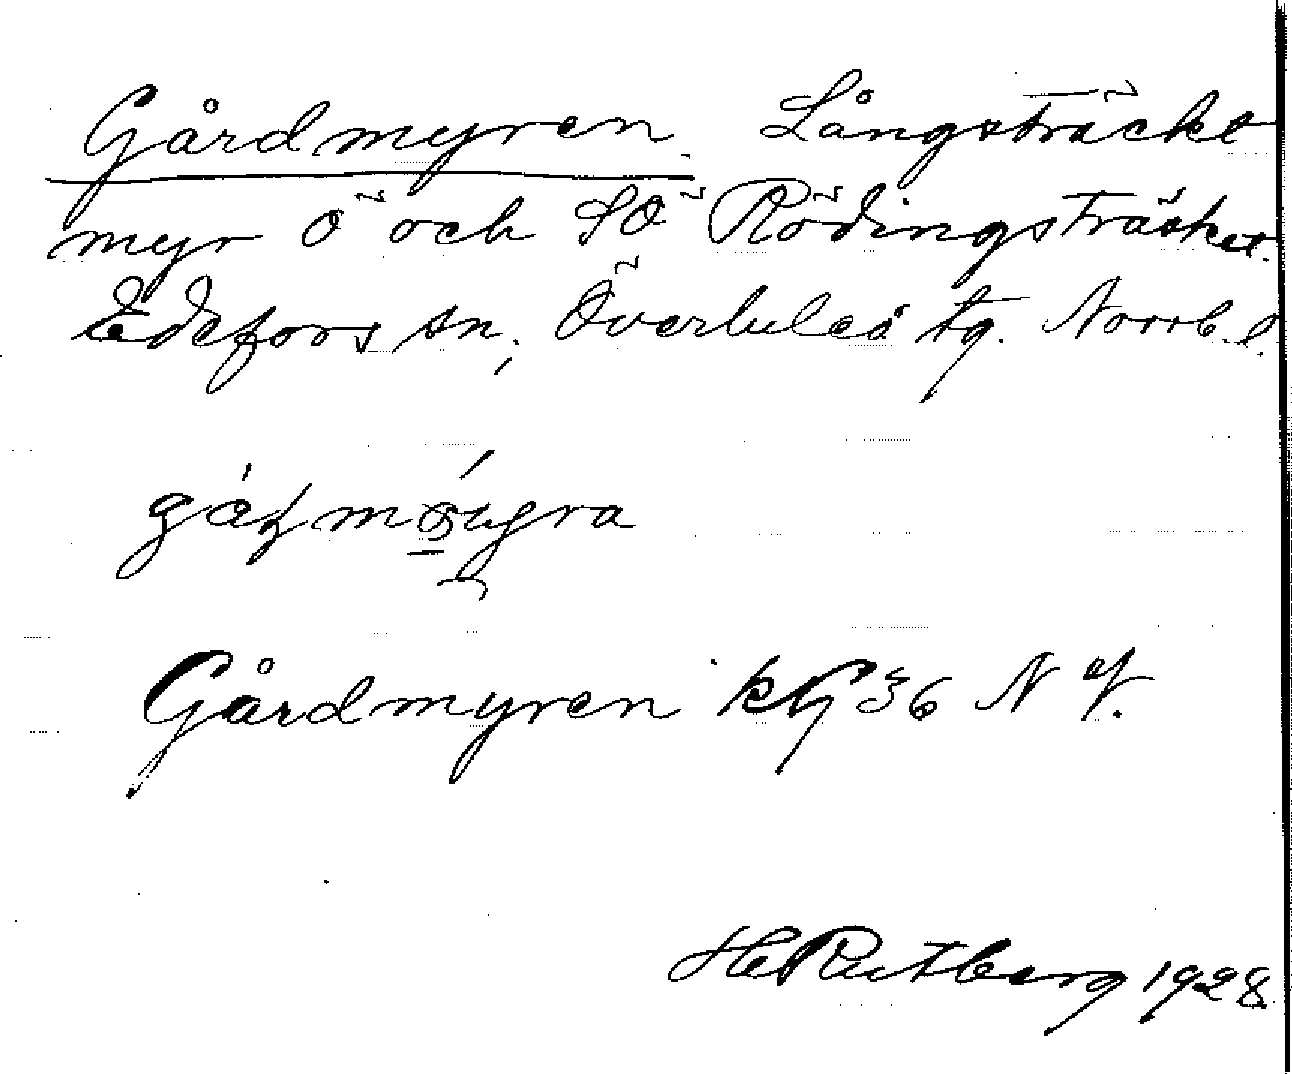 Gårdmyren. Långsträckt
myr Ö och SÖ Rödingsträsket.
Edefors sn, Överluleå tg. Norrb. l.
Gårdmyren kg 36 NV.
H Rutberg 1928